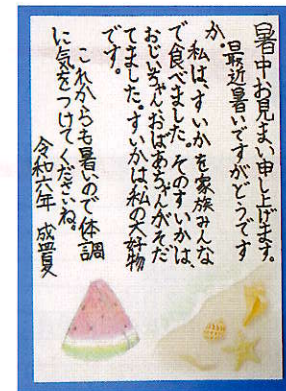 暑中お見まい申し上げます。
最近暑いですがどうですか。
私は、すいかを家族みんな
で食べました。そのすいかは、
おじいちゃん、おばあちゃんがそだ
てました。すいかは、私の大好物
です。
これからも暑いので体調
に気をつけてくださいね。
令和六年 盛夏